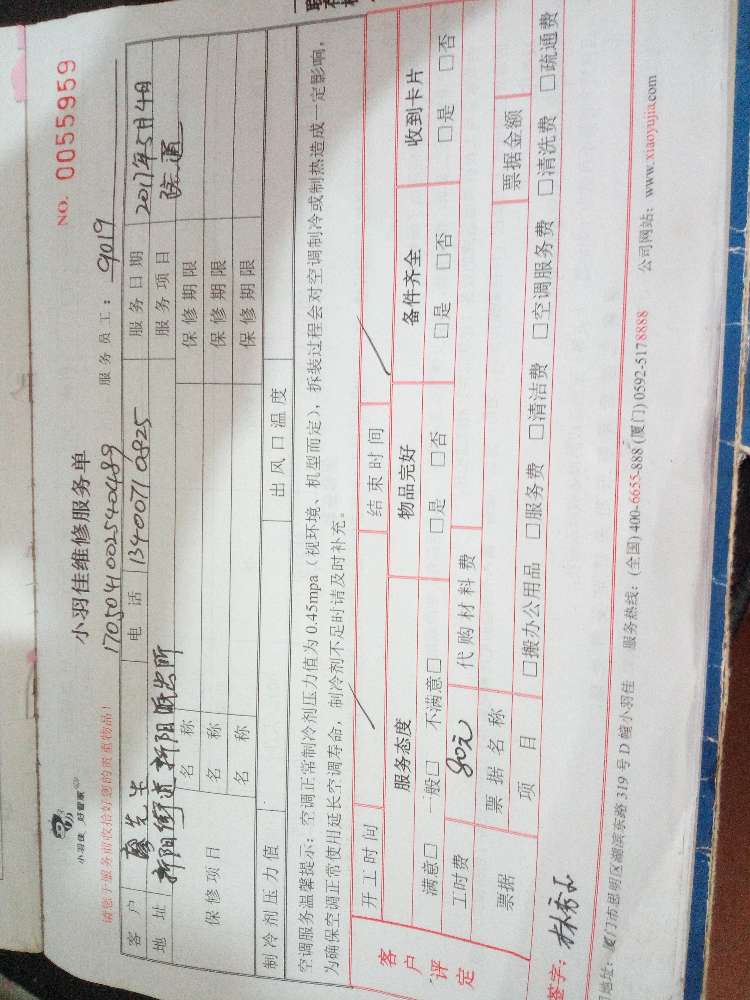 小羽佳 好管家
小羽佳维修服务单
NO. 0055959
1705041002540489
请您于服务前收拾好您的贵重物品!
服务员工: 9019
客户 先生 电话 13400710825 服务日期 2017年5月4日
地址 新阳街道新阳派出所 服务项目 疏通
保修项目 名称 保修期限
名称 保修期限
名称 保修期限
制冷剂压力值 出风口温度
空调服务温馨提示: 空调正常制冷剂压力值为0.45mpa (视环境、机型而定), 拆装过程会对空调制冷或制热造成一定影响,
为确保空调正常使用延长空调寿命, 制冷剂不足时请及时补充。
客户评定
开工时间 结束时间
服务态度 物品完好 备件齐全 收到卡片
满意□ 一般□ 不满意□ □是 □否 □是 □否 □是 □否
工时费 80元 代购材料费
票据 票据名称 票据金额
项目 □搬办公用品 □服务费 □清洁费 □空调服务费 □清洗费 □疏通费
签字:
地址: 厦门市思明区湖滨东路319号D幢小羽佳 服务热线: (全国) 400-6655-888 (厦门) 0592-5178888 公司网站: www.xiaoyujia.com